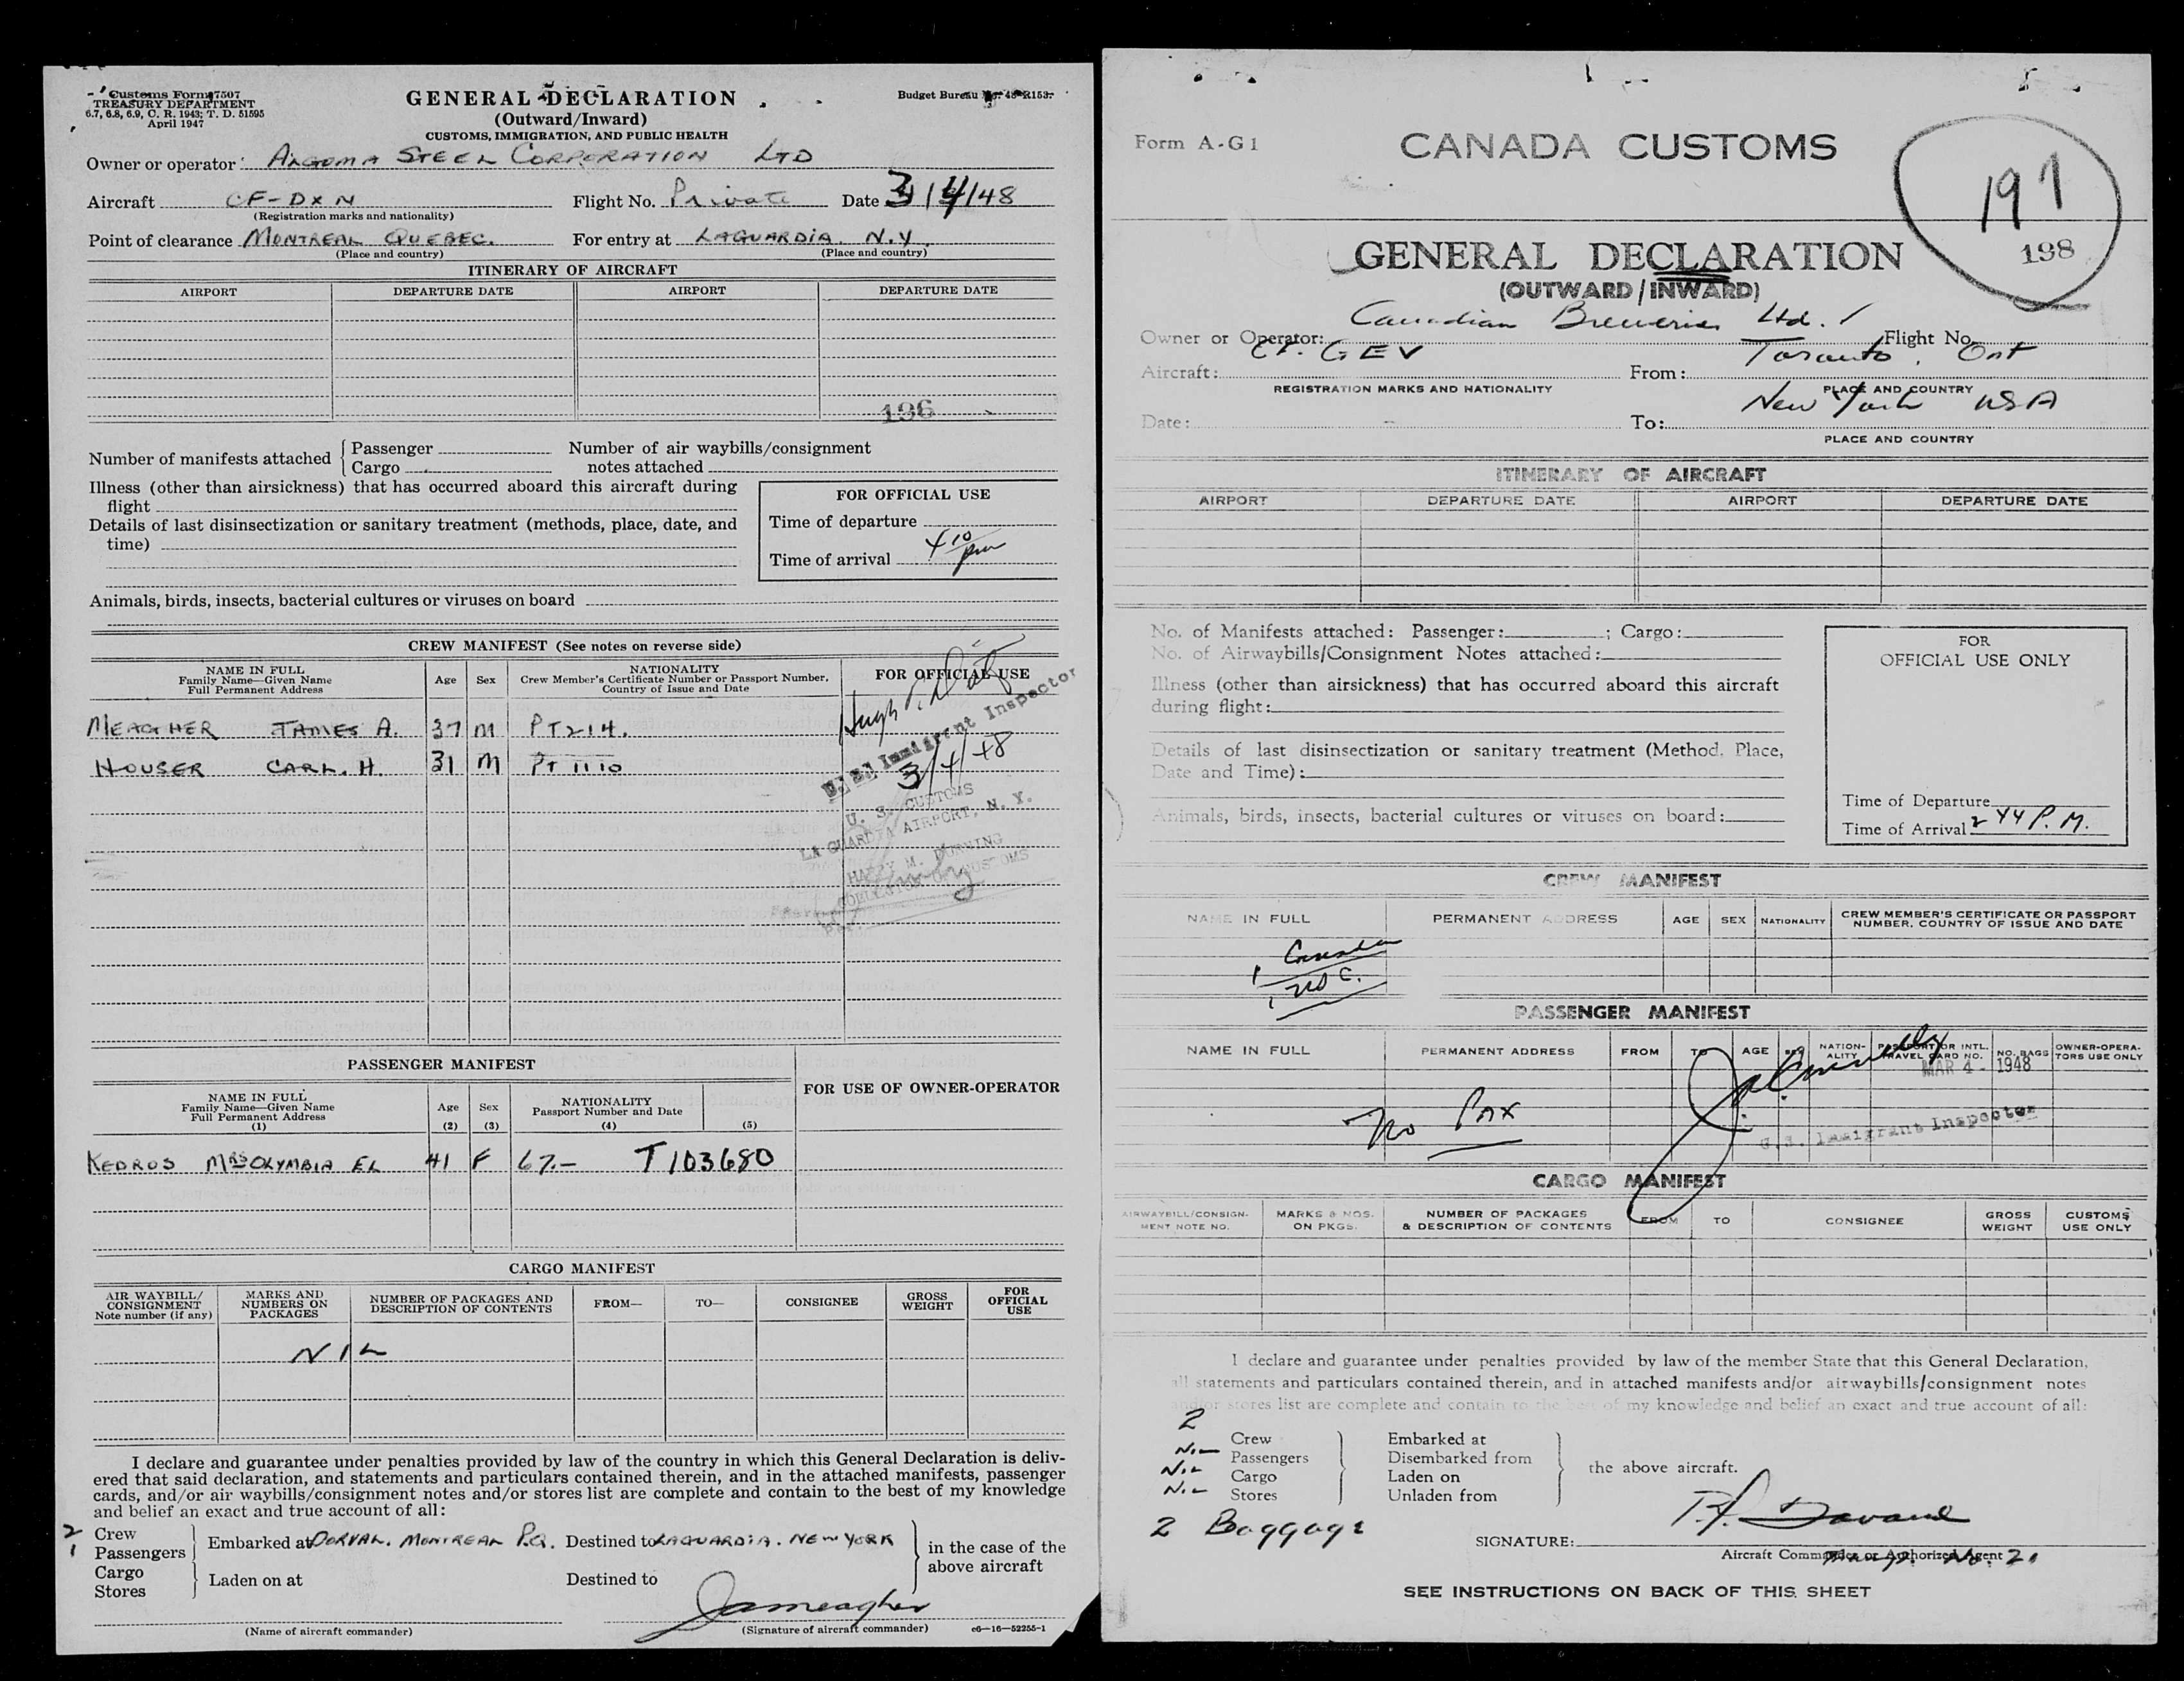 Customs Form 7507
TREASURY DEPARTMENT
6.7, 6.8, 6.9, C. R. 1943; T. D. 51595
April 1947
GENERAL DECLARATION
(Outward/Inward)
CUSTOMS, IMMIGRATION, AND PUBLIC HEALTH
Budget Bureau No. 48-R153.
Owner or operator: ALGOMA STEEL CORPORATION LTD
Aircraft CF-DXN Flight No. Private Date 3/4/48
(Registration marks and nationality)
Point of clearance MONTREAL QUEBEC. For entry at LAGUARDIA. N.Y.
(Place and country) (Place and country)
ITINERARY OF AIRCRAFT
AIRPORT DEPARTURE DATE AIRPORT DEPARTURE DATE
196
Number of manifests attached Passenger
Cargo
Number of air waybills/consignment
notes attached
Illness (other than airsickness) that has occurred aboard this aircraft during
flight
Details of last disinsectization or sanitary treatment (methods, place, date, and
time)
FOR OFFICIAL USE
Time of departure
Time of arrival 4 10 pm
Animals, birds, insects, bacterial cultures or viruses on board
CREW MANIFEST (See notes on reverse side)
NAME IN FULL
Family Name—Given Name
Full Permanent Address
Age Sex
NATIONALITY
Crew Member's Certificate Number or Passport Number,
Country of Issue and Date
FOR OFFICIAL USE
MEAGHER JAMES A. 37 M PT214.
HOUSER CARL. H. 31 M PT 1110
U. S. Immigrant Inspector
3/4/48
U. S. CUSTOMS
LA GUARDIA AIRPORT, N. Y.
HARRY M. DURNING
COLLECTOR OF CUSTOMS
Per
PASSENGER MANIFEST
FOR USE OF OWNER-OPERATOR
NAME IN FULL
Family Name—Given Name
Full Permanent Address
(1)
Age
(2)
Sex
(3)
NATIONALITY
Passport Number and Date
(4) (5)
KEDROS MRS OLYMBIA EL 41 F 67.- T103680
CARGO MANIFEST
AIR WAYBILL/
CONSIGNMENT
Note number (if any)
MARKS AND
NUMBERS ON
PACKAGES
NUMBER OF PACKAGES AND
DESCRIPTION OF CONTENTS
FROM— TO— CONSIGNEE
GROSS
WEIGHT
FOR
OFFICIAL
USE
NIL
I declare and guarantee under penalties provided by law of the country in which this General Declaration is deliv-
ered that said declaration, and statements and particulars contained therein, and in the attached manifests, passenger
cards, and/or air waybills/consignment notes and/or stores list are complete and contain to the best of my knowledge
and belief an exact and true account of all:
2 Crew
1 Passengers
Cargo
Stores
Embarked at DORVAL. MONTREAL P.Q. Destined to LAGUARDIA. NEW YORK
Laden on at Destined to
in the case of the
above aircraft
Jameagher
(Name of aircraft commander) (Signature of aircraft commander) c6—16—52255-1
Form A-G1
CANADA CUSTOMS
197
198
GENERAL DECLARATION
(OUTWARD/INWARD)
Owner or Operator: Canadian Breweries Ltd. Flight No.
Aircraft: CF. GEV From: Toronto, Ont
REGISTRATION MARKS AND NATIONALITY PLACE AND COUNTRY
Date: To: New York USA
PLACE AND COUNTRY
ITINERARY OF AIRCRAFT
AIRPORT DEPARTURE DATE AIRPORT DEPARTURE DATE
No. of Manifests attached: Passenger: ; Cargo:
No. of Airwaybills/Consignment Notes attached:
Illness (other than airsickness) that has occurred aboard this aircraft
during flight:
Details of last disinsectization or sanitary treatment (Method, Place,
Date and Time):
Animals, birds, insects, bacterial cultures or viruses on board:
FOR
OFFICIAL USE ONLY
Time of Departure
Time of Arrival 2 44 P.M.
CREW MANIFEST
NAME IN FULL PERMANENT ADDRESS AGE SEX NATIONALITY
CREW MEMBER'S CERTIFICATE OR PASSPORT
NUMBER, COUNTRY OF ISSUE AND DATE
1 Canadian
1 USC.
PASSENGER MANIFEST
NAME IN FULL PERMANENT ADDRESS FROM TO AGE SEX
NATION-
ALITY
PASSPORT OR INTL.
TRAVEL CARD NO.
NO. BAGS
OWNER-OPERA-
TORS USE ONLY
MAR 4 - 1948
No PAX
U.S. Immigrant Inspector
CARGO MANIFEST
AIRWAYBILL/CONSIGN-
MENT NOTE NO.
MARKS & NOS.
ON PKGS.
NUMBER OF PACKAGES
& DESCRIPTION OF CONTENTS
FROM TO CONSIGNEE
GROSS
WEIGHT
CUSTOMS
USE ONLY
I declare and guarantee under penalties provided by law of the member State that this General Declaration,
all statements and particulars contained therein, and in attached manifests and/or airwaybills/consignment notes
and/or stores list are complete and contain to the best of my knowledge and belief an exact and true account of all:
2 Crew
NIL Passengers
NIL Cargo
NIL Stores
2 Baggage
Embarked at
Disembarked from
Laden on
Unladen from
the above aircraft.
SIGNATURE:
Aircraft Commander or Authorized Agent
SEE INSTRUCTIONS ON BACK OF THIS SHEET